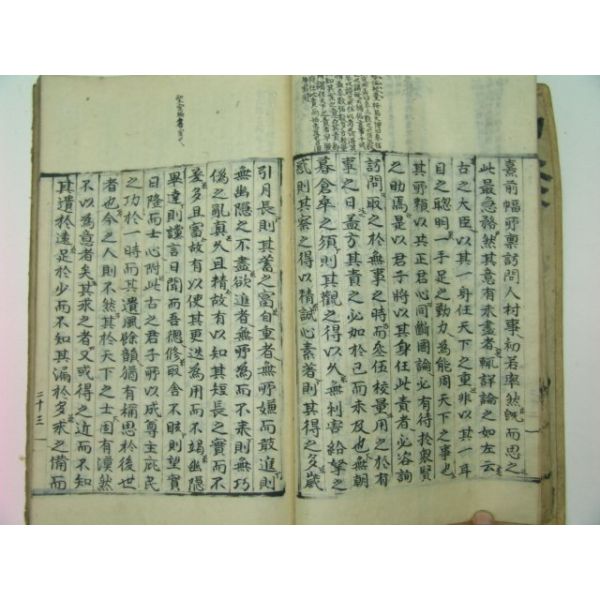 熹前幅所稟訪問人材事初若率然旣而思之
此最急務然其意有未盡者輒詳論之如左云
古之大臣以其一身任天下之重非以其一耳
目之聰明一手足之勤力爲能周天下之事也
其所賴以共正君心同斷國論必有待於衆賢
之助焉是以君子將以其身任此責者必咨詢
訪問取之於無事之時而參伍校量用之於有
事之日盖方其責之必加於已而未及也無朝
暮倉卒之須則其觀之得以久無利害紛拏之
惑則其察之得以精誠心素著則其得之多歲
引月長則其蓄之富自重者無所嫌而敢進則
無幽隱之不盡欲進者無所爲而不來則無巧
僞之亂眞久且精故有以知其短長之實而不
差多且富故有以使其更迭爲用而不竭幽隱
畢達則讜言日聞而吾德修取舍不眩則望實
日隆而士心附此古之君子所以成尊主庇民
之功於一時而其遺風餘韻猶有稱思於後世
者也今之人則不然其於天下之士固有漠然
不以爲意者矣其求之者又或得之近而不知
其遺於遠足於少而不知其漏於多求之備而
二十三